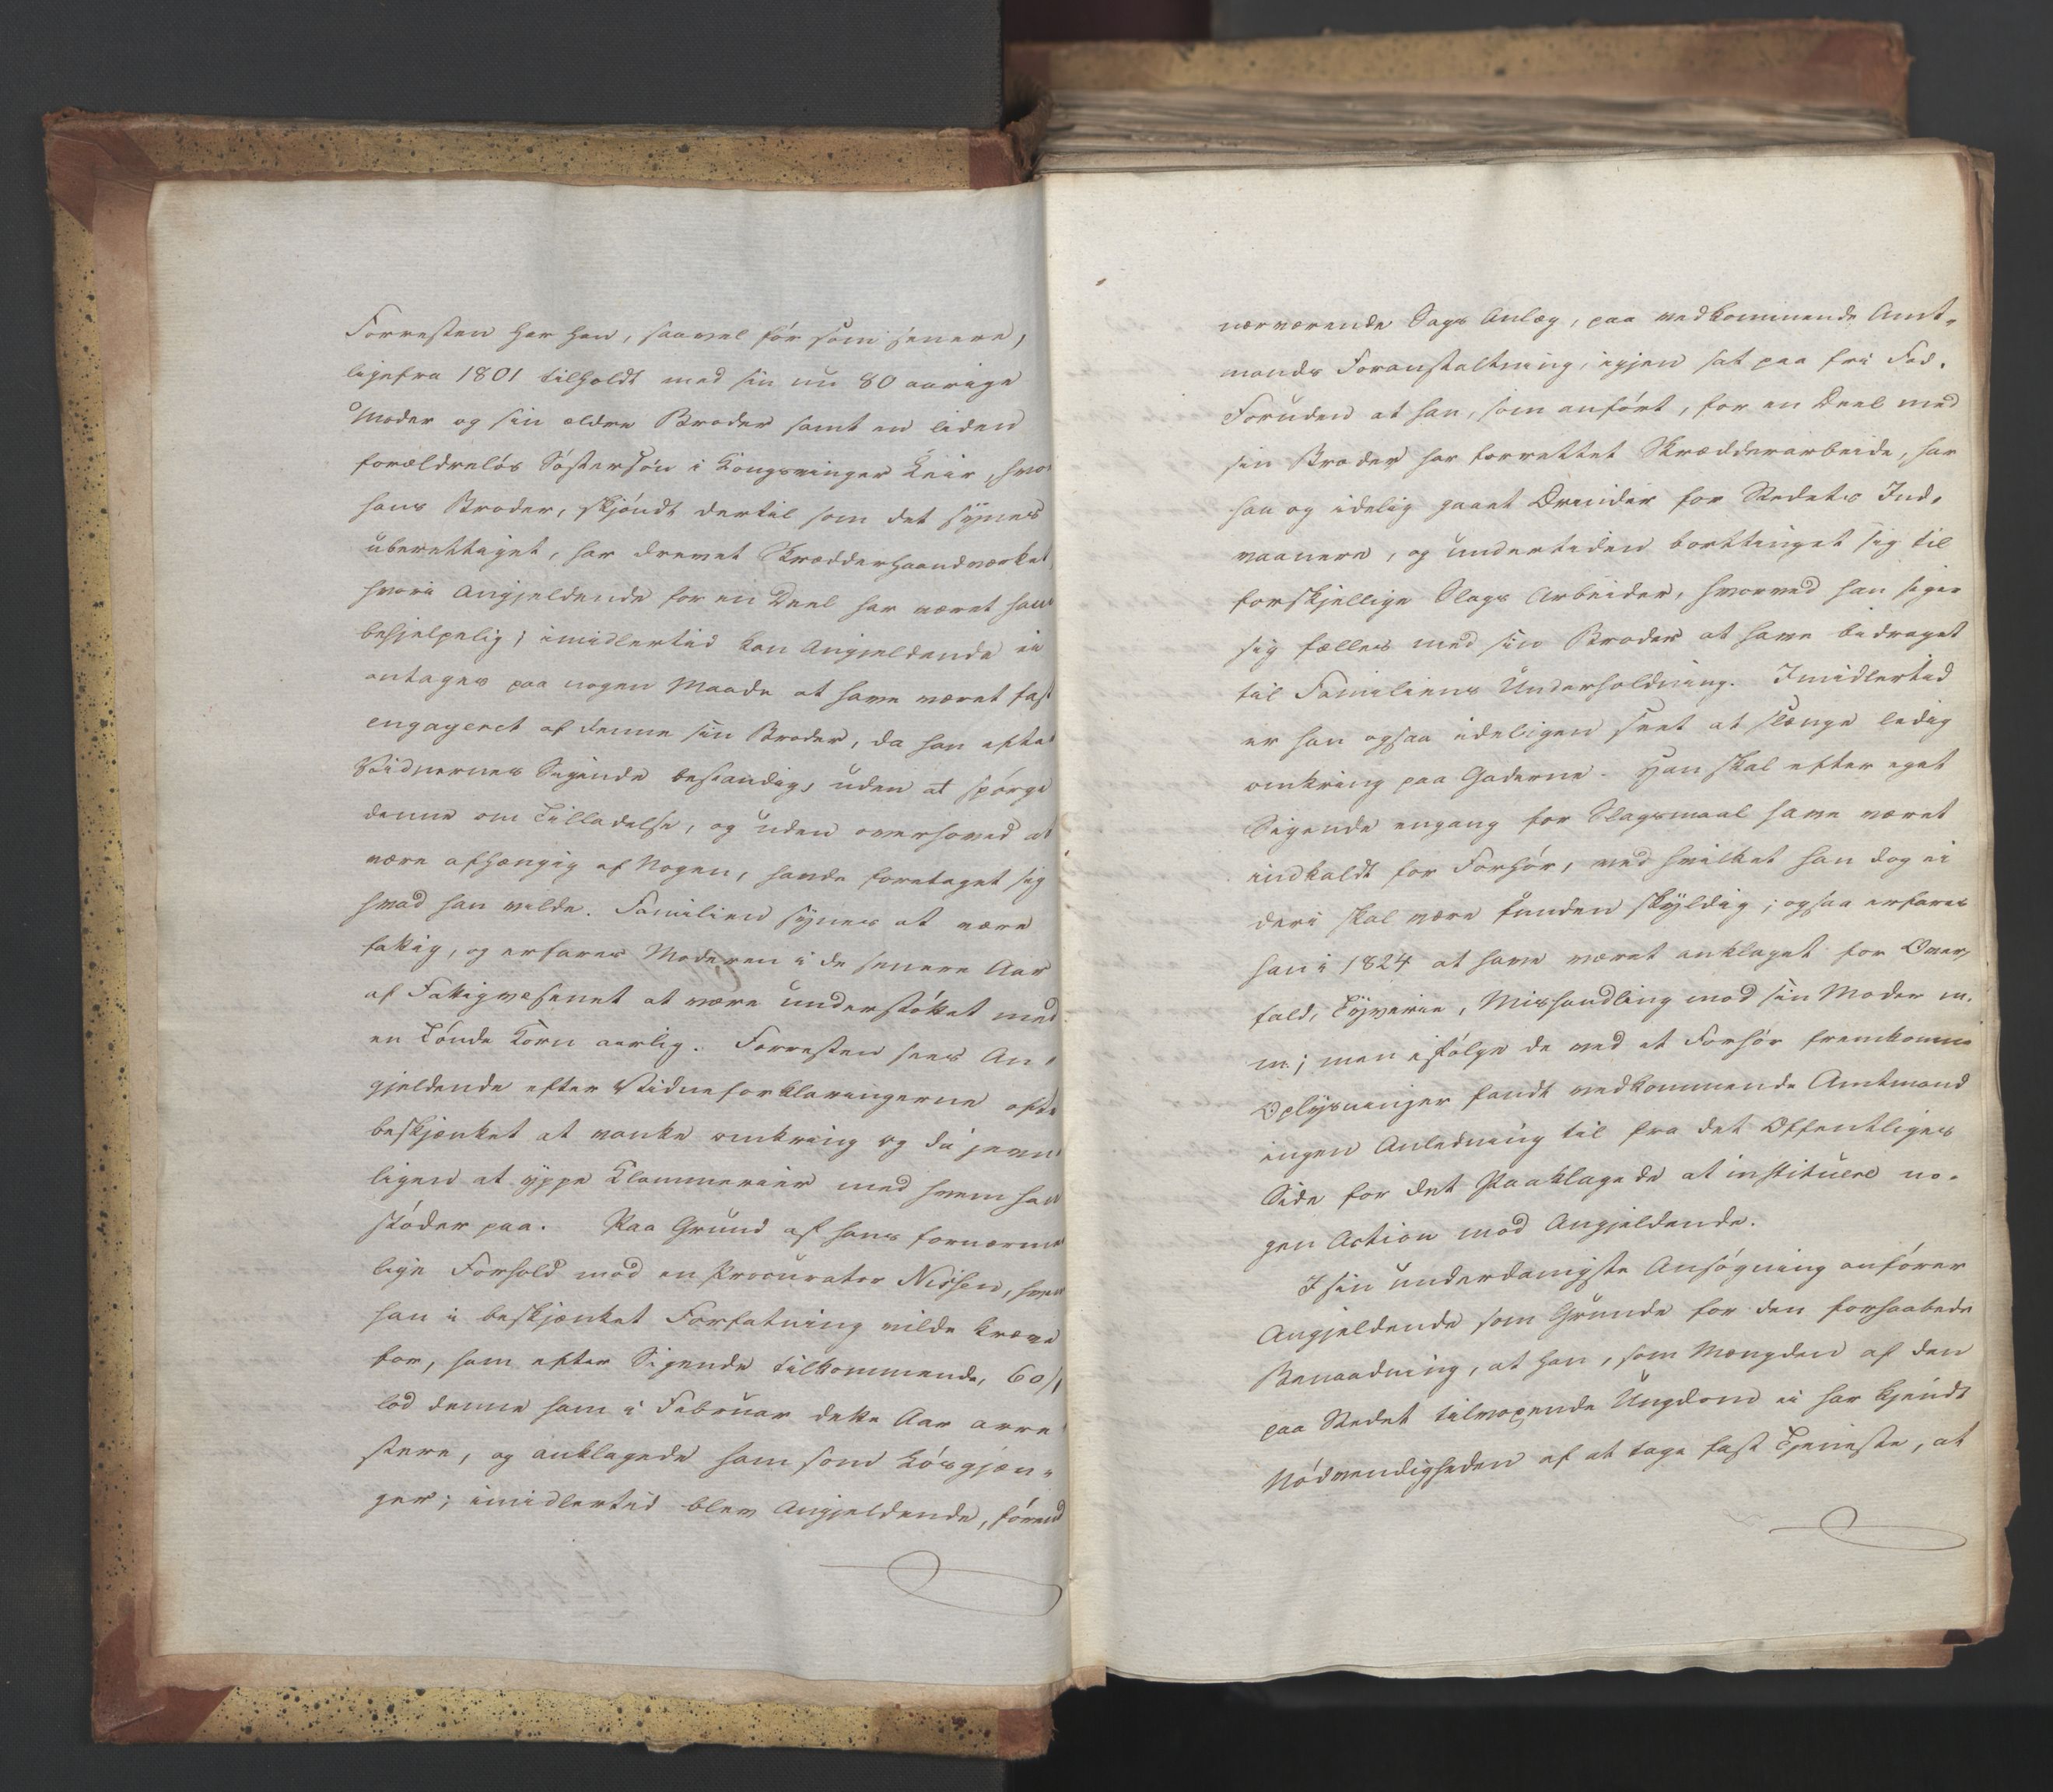 Forresten har han, saavel før som senere,
ligefra 1801 tilholdt med sin nu 80 aarige
Moder og sin ældre Broder samt en liden
forældreløs Søstersøn i Kongsvinger Leir, hvor
hans Broder, skjøndt dertil som det synes
uberettiget, har drevet Skrædderhaandværket
hvori Angjeldende for en Deel har været ham
behjelpelig; imidlertid kan Angjeldende ei
antages paa nogen Maade at have været fast
engageret af denne sin Broder, da han efter
Vidnernes Sigende bestandig, uden at spørge
denne om Tilladelse, og uden overhoved at
være afhængig af Nogen, havde foretaget sig
hvad han vilde. Familien synes at være
fattig, og erfares Moderen i de senere Aar
af Fattigvæsenet at være understøttet med
en Tønde Korn aarlig. Forresten sees An-
gjeldende efter Vidneforklaringerne ofte
beskjænket at vanke omkring og da jevn-
ligen at yppe Klammerier med hvem han
støder paa. Paa Grund af hans fornærme-
lige Forhold mod en Procurator Nissen, hvem
han i beskjænket Forfatning vilde kræve
for, ham efter Sigende tilkommende, 60 /
lod denne ham i Februar dette Aar arre-
stere, og anklagede ham som Løsgjæn-
ger; imidlertid blev Angjeldende, førend
nærværende Sags Anlæg, paa vedkommende Amt-
mands Foranstaltning, igjen sat paa fri Fod.
Foruden at han, som anført, for en Deel med
sin Broder har forrettet Skrædderarbeide, har
han og idelig gaaet Ærinder for Stedets Ind-
vaanere, og undertiden borttinget sig til
forskjellige Slags Arbeider, hvorved han siger
sig fælles med sin Broder at have bidraget
til Familiens Underholdning. Imidlertid
er han ogsaa ideligen seet at slænge ledig
omkring paa Gaderne. Han skal efter eget
Sigende engang for Slagsmaal have været
indkaldt for Forhør, ved hvilket han dog ei
deri skal være funden skyldig; ogsaa erfares
han i 1824 at have været anklaget for Over-
fald, Tyverie, Mishandling mod sin Moder m.
m; men ifølge de ved et Forhør fremkomne
Oplysninger fandt vedkommende Amtmand
ingen Anledning til fra det Offentliges
Side for det Paaklagede at instituere no-
gen Action mod Angjeldende.
I sin underdanigste Ansøgning anfører
Angjeldende som Grunde for den forhaabede
Benaadning, at han, som Mængden af den
paa Stedet tilvoxende Ungdom ei har kjendt
Nødvendigheden af at tage fast Tjeneste, at